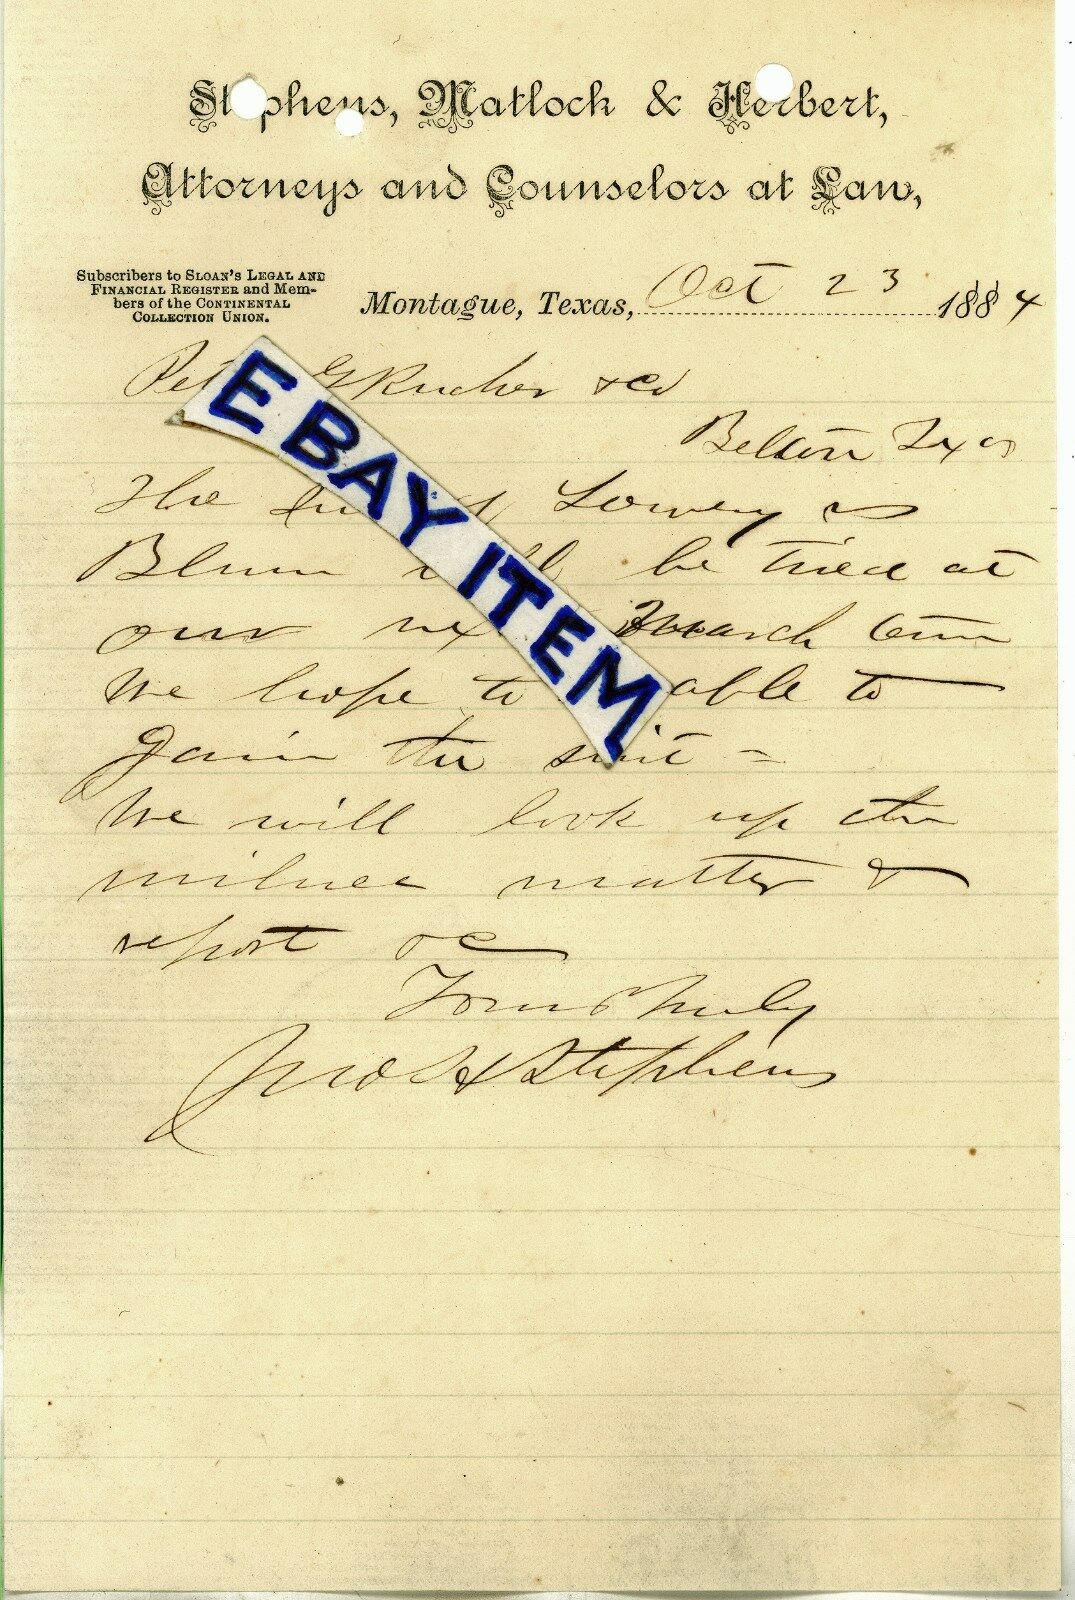 Stephens, Matlock & Herbert,
Attorneys and Counselors at Law,
Subscribers to SLOAN'S LEGAL AND
FINANCIAL REGISTER and Mem-
bers of the CONTINENTAL
COLLECTION UNION.
Montague, Texas, Oct 23 1884
& Co
Belton Texas
EBAY ITEM
The Lowery vs
Blum will be tried at
our next March term
We hope to able to
gain the suit =
We will look up the
matter &
report &c
Yours Truly
Jno H Stephens